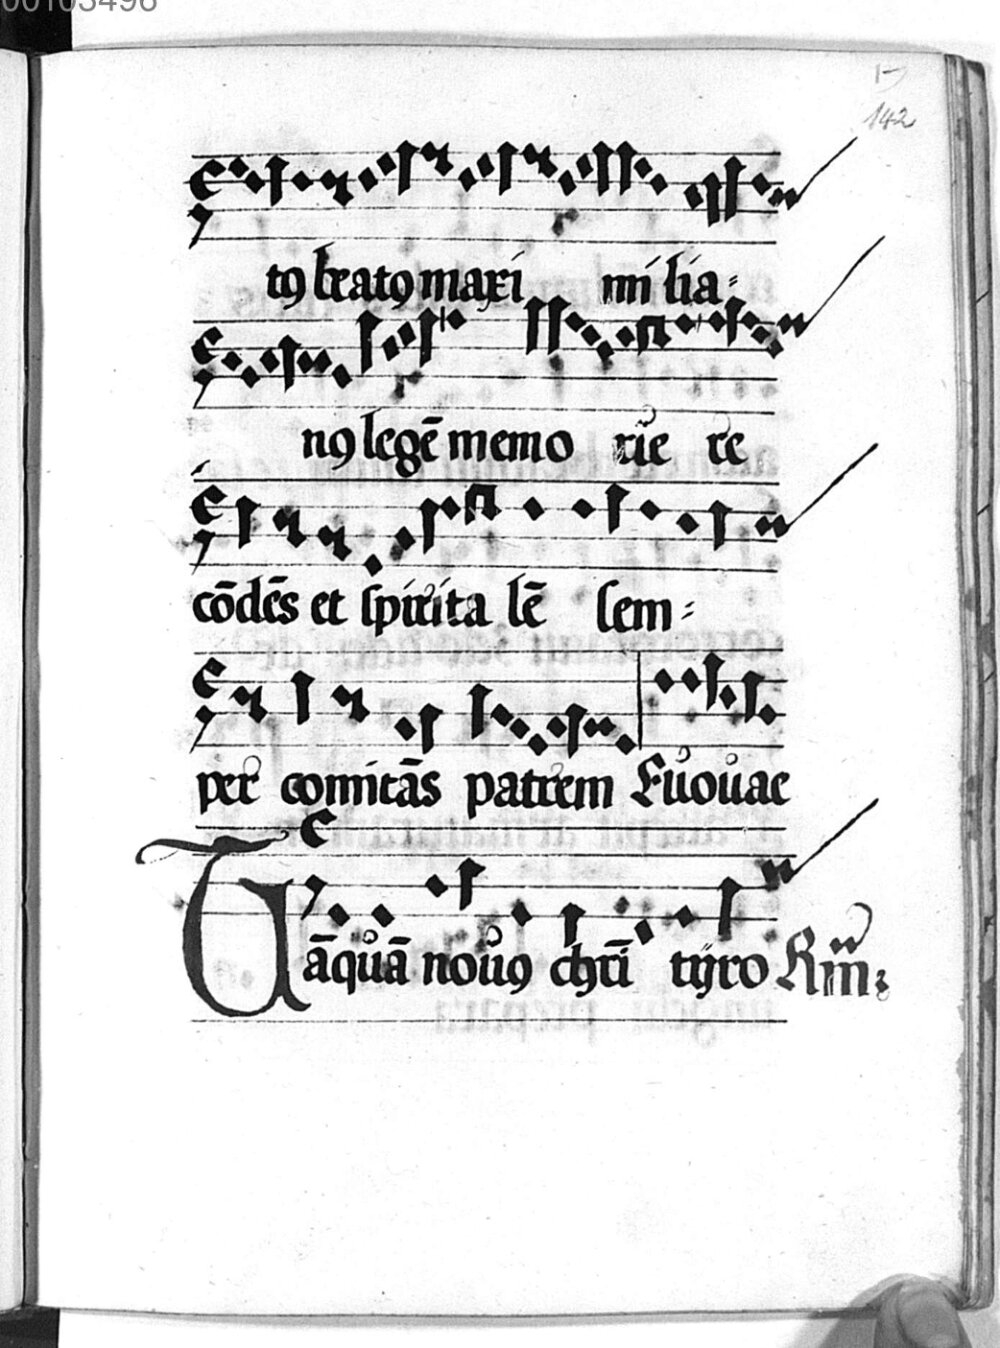 00103496
142
tꝯ beatꝯ maxi mi lia⸗
nꝯ legē memo rie re
cōdēs et spirita lē sem⸗
per comitās patrem Euouae
Tāquā nouꝯ chri̅ tÿro